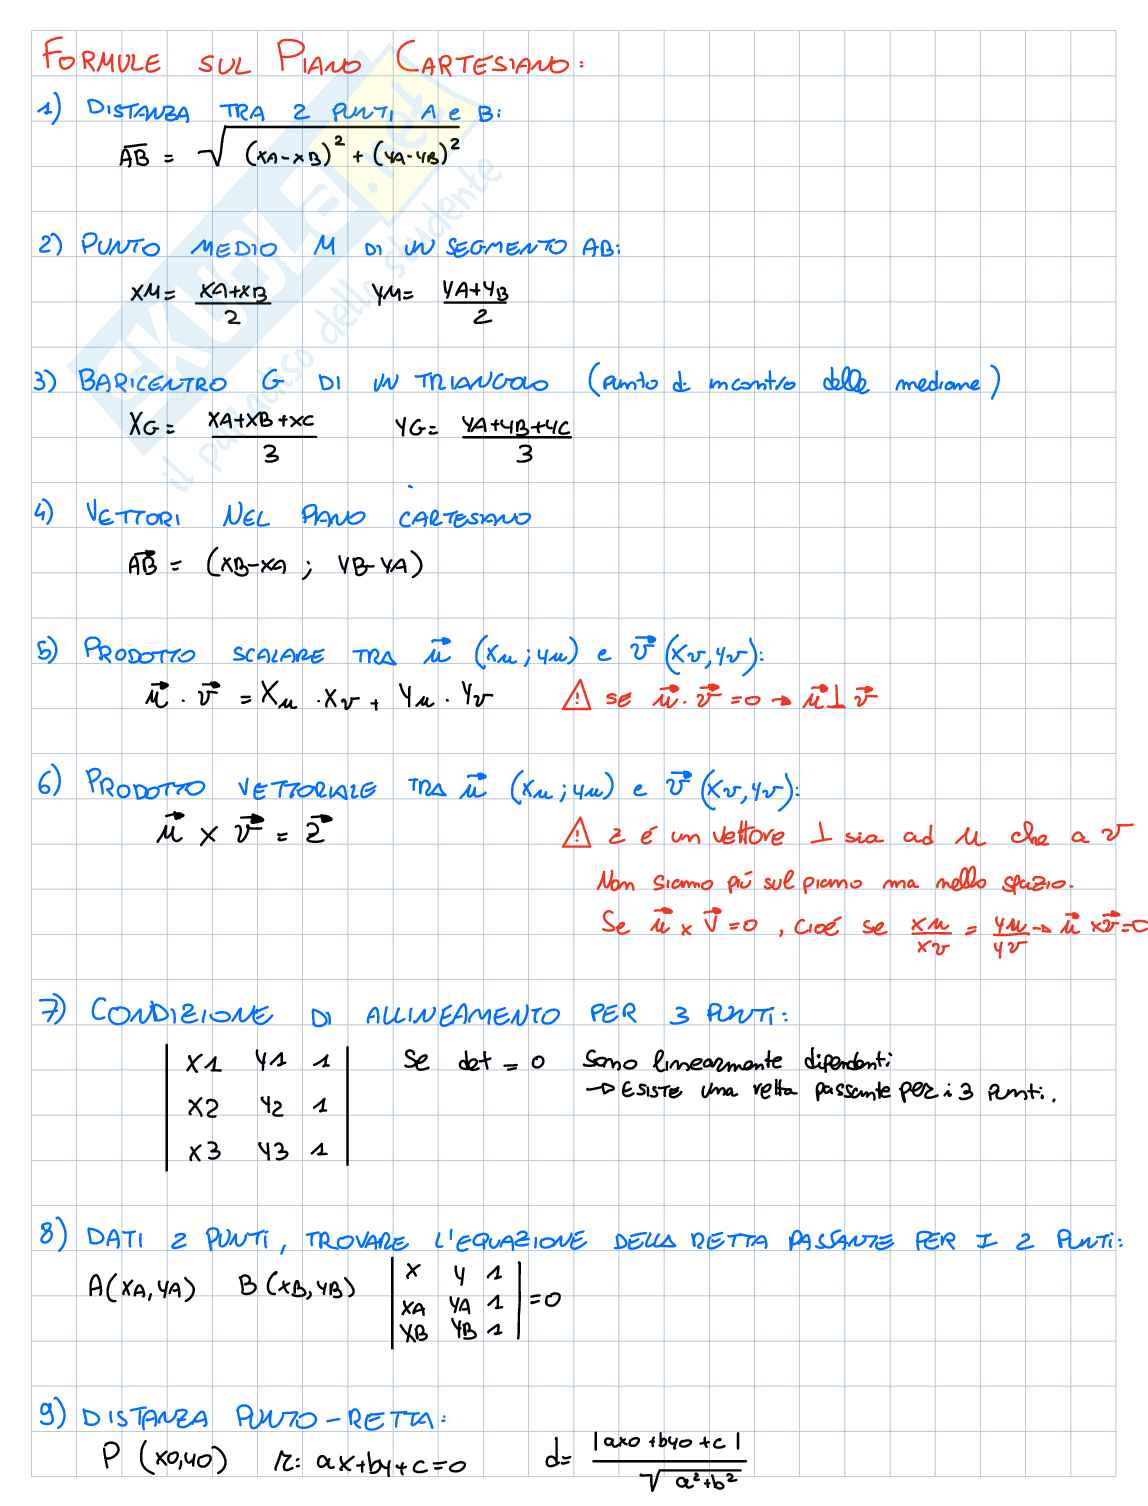 FORMULE SUL PIANO CARTESIANO:
1) DISTANZA TRA 2 PUNTI A e B:
AB̅ = √(xA-xB)² + (yA-yB)²
2) PUNTO MEDIO M DI UN SEGMENTO AB:
xM = (xA+xB)/2 yM = (yA+yB)/2
3) BARICENTRO G DI UN TRIANGOLO (punto di incontro delle mediane)
xG = (xA+xB+xC)/3 yG = (yA+yB+yC)/3
4) VETTORI NEL PIANO CARTESIANO
AB⃗ = (xB-xA ; yB-yA)
5) PRODOTTO SCALARE TRA u⃗ (xu ; yu) e v⃗ (xv, yv):
u⃗ · v⃗ = xu · xv + yu · yv ⚠ se u⃗ · v⃗ = 0 → u⃗ ⊥ v⃗
6) PRODOTTO VETTORIALE TRA u⃗ (xu ; yu) e v⃗ (xv, yv):
u⃗ × v⃗ = z⃗ ⚠ z é un vettore ⊥ sia ad u che a v
Non siamo piú sul piano ma nello spazio.
Se u⃗ × v⃗ = 0 , cioé se xu/xv = yu/yv → u⃗ × v⃗ = 0
7) CONDIZIONE DI ALLINEAMENTO PER 3 PUNTI:
| x1 y1 1 | Se det = 0 Sono linearmente dipendenti
| x2 y2 1 | → ESISTE una retta passante per i 3 punti.
| x3 y3 1 |
8) DATI 2 PUNTI, TROVARE L'EQUAZIONE DELLA RETTA PASSANTE PER I 2 PUNTI:
A(xA, yA) B(xB, yB) | x y 1 |
| xA yA 1 | = 0
| xB yB 1 |
9) DISTANZA PUNTO-RETTA:
P (x0, y0) r: ax+by+c=0 d = |ax0+by0+c| / √a²+b²
SKUOLA.net
il paradiso dello studente